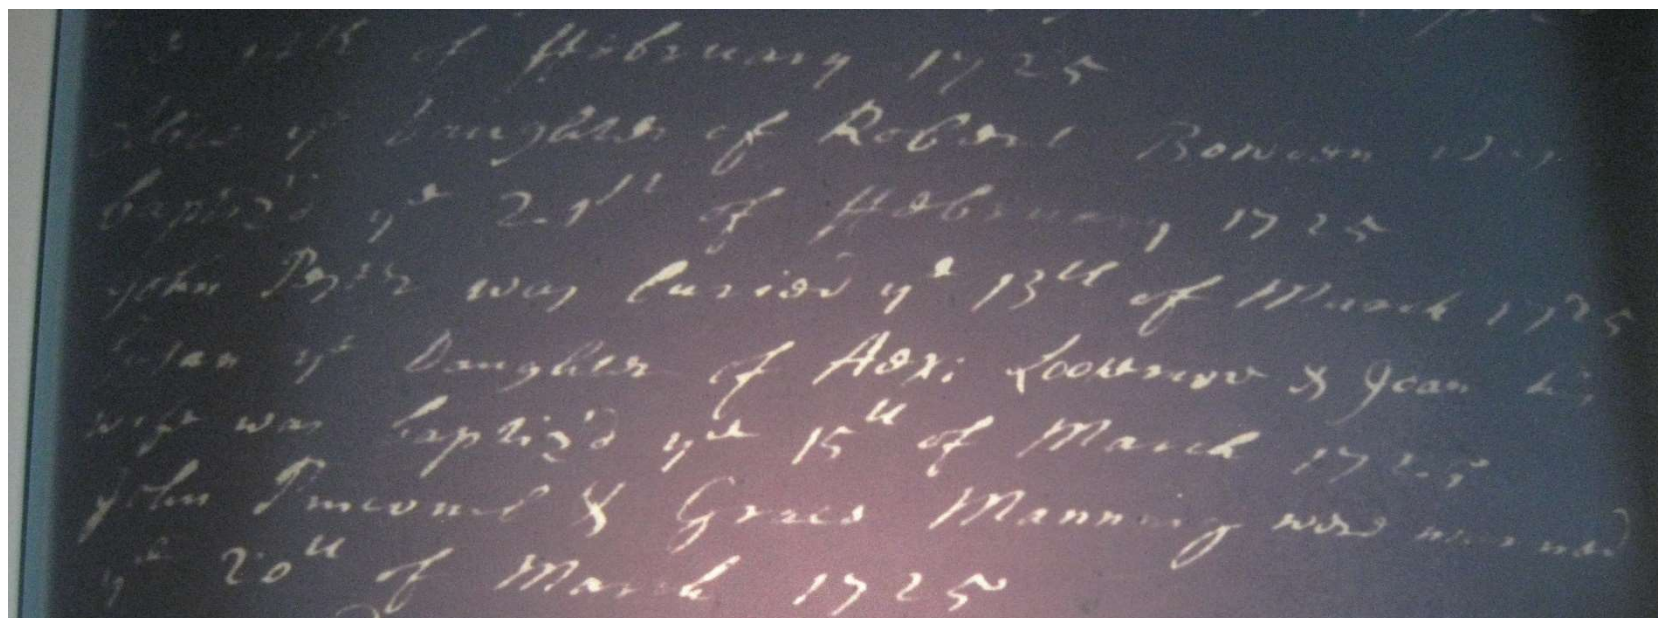 of ffebruary 1725
ye Daughter of Robert Bowden was
baptiz'd ye 21st of ffebruary 1725
John was buried ye 13th of March 1725
Susan ye Daughter of & Joan his
wife was baptiz'd ye 15th of March 1725
John & Grace Manning were married
ye 20th of March 1725